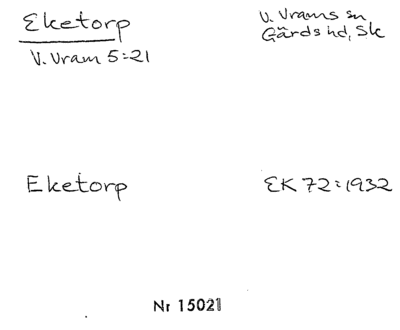 Eketorp
V. Vrams sn
Gärds hd, Sk
V. Vram 5:21
Eketorp
EK 72:1932
Nr 15021